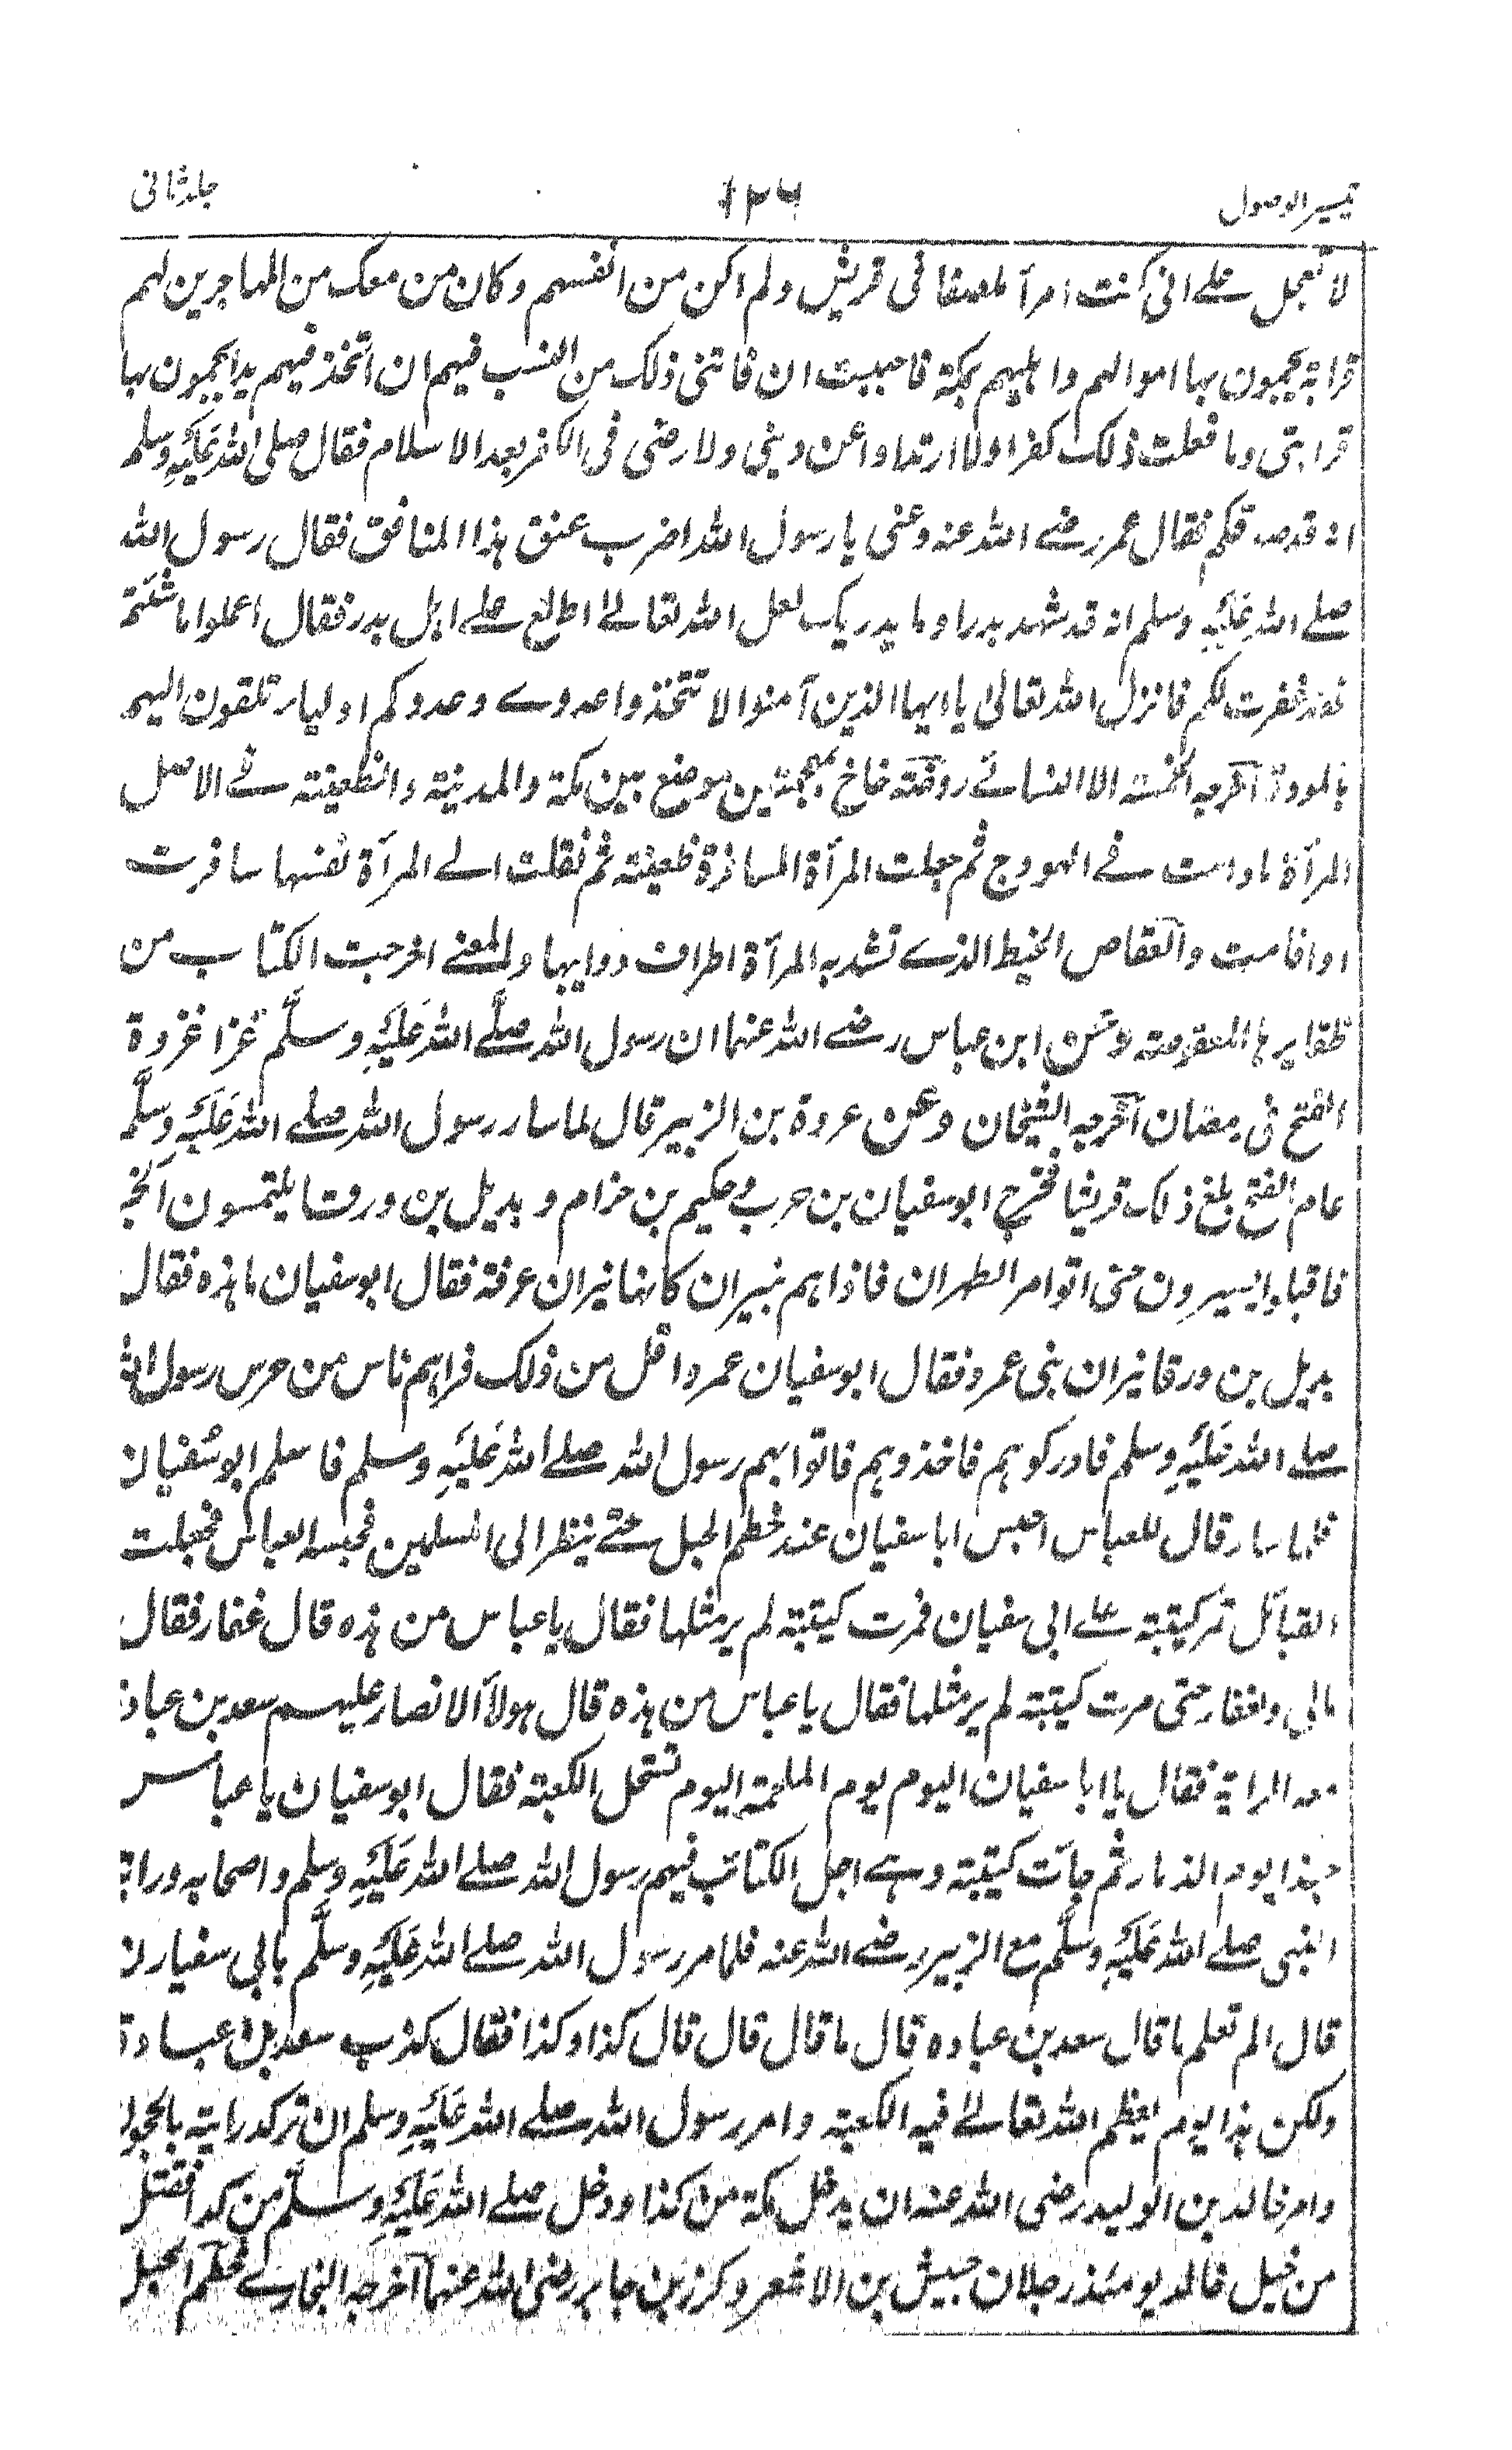 تيسير الوصول ١٢٦ جلد ثانی
لا تعجل علے انی کنت امرأ ملصقا فی قریش ولم اکن من انفسهم وکان من معک من المهاجرین لهم
قرابة یحمون بها اموالهم واهلیهم بمکة فاحببت ان فاتنی ذلک من النسب فیهم ان اتخذ فیهم یدا یحمون بها
قرابتی وما فعلت ذلک کفرا ولا ارتدادا عن دینی ولا رضی فی الکفر بعد الاسلام فقال صلی الله علیه وسلم
انه قد صدقکم فقال عمر رضے الله عنه دعنی یا رسول الله اضرب عنق هذا المنافق فقال رسول الله
صلے الله علیه وسلم انه قد شهد بدرا وما یدریک لعل الله تعالے اطلع علے اهل بدر فقال اعملوا ما شئتم
فقد غفرت لکم فانزل الله تعالیٰ یا ایها الذین آمنوا لا تتخذوا عدوے وعدوکم اولیاء تلقون الیهم
بالمودة آخرجه الخمسة الا النسائے روضة خاخ بمعجمتین موضع بین مکة والمدینة والظعینة فے الاصل
المرأة ما دامت فے الهودج ثم جعلت المرأة المسافرة ظعینة ثم نقلت الے المرأة نفسها سافرت
او اقامت والعقاص الخیط الذے تشد به المرأة اطراف ذوایبها والمعنے اخرجت الکتاب من
ظفایرها المعقوصة وعن ابن عباس رضے الله عنهما ان رسول الله صلّے الله علیه وسلّم غزا غزوة
الفتح فی رمضان آخرجه الشیخان وعن عروة بن الزبیر قال لما سار رسول الله صلے الله علیه وسلّم
عام الفتح بلغ ذلک قریشا فخرج ابو سفیان بن حرب وحکیم بن حزام وبدیل بن ورقا یلتمسون الخبر
فاقبلوا یسیرون حتی اتوا مر الظهران فاذا هم بنیران کانها نیران عرفة فقال ابو سفیان ما هذه فقال
بدیل بن ورقا نیران بنی عمرو فقال ابو سفیان عمرو اقل من ذلک فراهم ناس من حرس رسول الله
صلے الله علیه وسلم فادرکوهم فاخذوهم فاتوا بهم رسول الله صلے الله علیه وسلم فاسلم ابو سفیان
فلما سار قال للعباس احبس ابا سفیان عند خطم الجبل حتے ینظر الی المسلمین فحبسه العباس فجعلت
القبائل تمر کتیبة علے ابی سفیان فمرت کتیبة لم یر مثلها فقال یا عباس من هذه قال غفار فقال
مالی ولغفار حتی مرت کتیبة لم یر مثلها فقال یا عباس من هذه قال هولآ الانصار علیهم سعد بن عبادة
معه الرایة فقال یا ابا سفیان الیوم یوم الملحمة الیوم تستحل الکعبة فقال ابو سفیان یا عباس
حبذا یوم الذمار ثم جآت کتیبة وهے اجل الکتائب فیهم رسول الله صلے الله علیه وسلم واصحابه ورایة
النبی صلے الله علیه وسلّم مع الزبیر رضے الله عنه فلما مر رسول الله صلے الله علیه وسلّم بابی سفیان
قال الم تعلم ما قال سعد بن عباده قال ما قال قال قال کذا وکذا فقال کذب سعد بن عبادة
ولکن هذا یوم یعظم الله تعالے فیه الکعبة وامر رسول الله صلے الله علیه وسلم ان ترکد رایته بالحجون
وامر خالد بن الولید رضی الله عنه ان یدخل مکة من کدا ودخل صلے الله علیه وسلّم من کدا فقتل
من خیل خالد یومئذ رجلان حبیش بن الاشعر وکرز بن جابر رضی الله عنهما آخرجه البخارے خطم الجبل